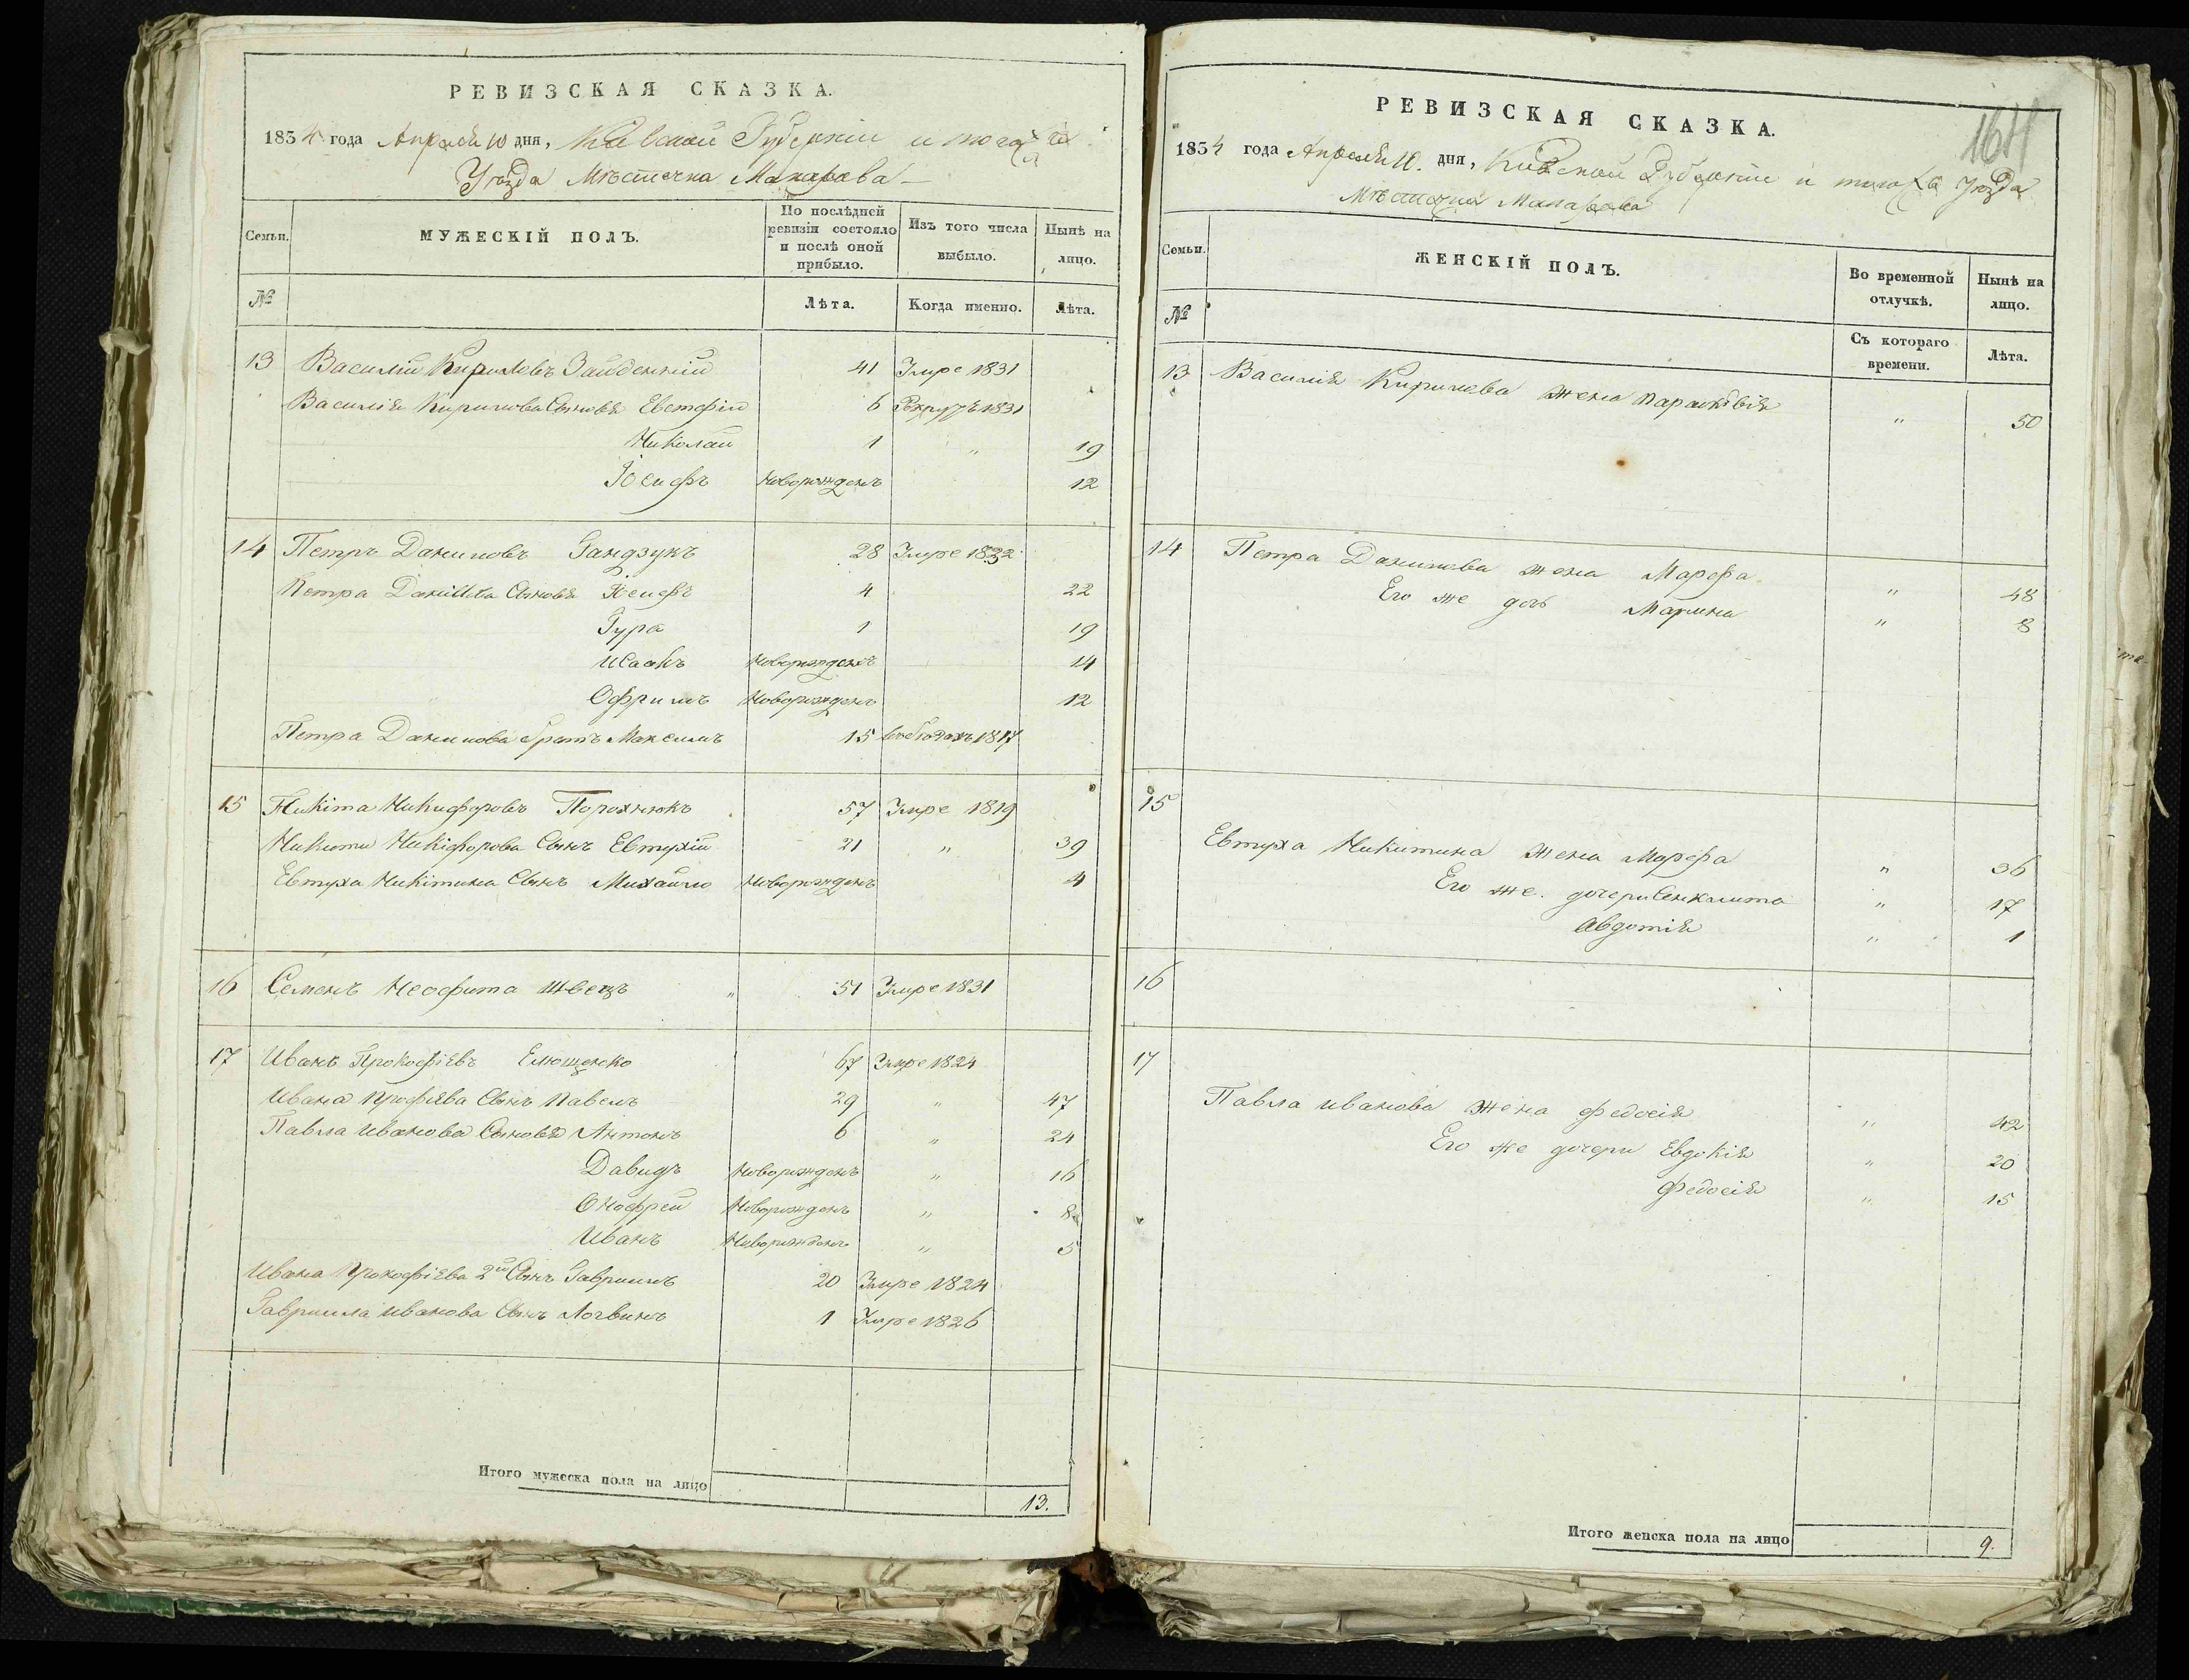 РЕВИЗСКАЯ СКАЗКА.
1834 года Апреля 10 дня, Киевской Губерніи и тогожъ
Уѣзда Мѣстечка Макарова
Семьи. МУЖЕСКІЙ ПОЛЪ. По послѣдней ревизіи состояло и послѣ оной прибыло. Изъ того числа выбыло. Нынѣ на лицо.
№ Лѣта. Когда именно. Лѣта.
13 Василій Кириловъ 41 Умре 1831
Василія Кирилова Сыновья Евстефій 6 Рекрутъ 1831
Николай 1 " 19
Іосифъ Новорожденъ 12
14 Петръ Даниловъ Гандзукъ 28 Умре 1832
Петра Данилова Сыновья Іосифъ 4 22
Гура 1 19
Исаакъ Новорожденъ 14
Офримъ Новорожденъ 12
Петра Данилова братъ Максимъ 15 1817
15 Никита Никифоровъ Порохнюкъ 57 Умре 1819
Никиты Никіфорова Сынъ Евтухій 21 " 39
Евтуха Никітина Сынъ Михайло Новорожденъ 4
16 Семенъ Неофита Швецъ " 51 Умре 1831
17 Иванъ Прокофіевъ Елющенко 67 Умре 1824
Ивана Профіева Сынъ Павелъ 29 " 47
Павла Иванова Сыновья Антонъ 6 " 24
Давидъ Новорожденъ " 16
Онофрей Новорожденъ " 8
Иванъ Новорожденъ " 5
Ивана Прокофіева 2й Сынъ Гавриилъ 20 Умре 1824
Гавриила Иванова Сынъ Логвинъ 1 Умре 1826
Итого мужеска пола на лицо 13.
РЕВИЗСКАЯ СКАЗКА.
1834 года Апреля 10. дня, Киевской Губерніи и тогожъ Уѣзда
Мѣстечка Макарова
Семьи. ЖЕНСКІЙ ПОЛЪ. Во временной отлучкѣ. Нынѣ на лицо.
№ Съ котораго времени. Лѣта.
13 Василія Кирилова жена Парасковія " 50
14 Петра Данилова жена Марфа " 48
Его же дочь Марина " 8
15
Евтуха Никитина жена Марфа " 36
Его же. дочери " 17
Авдотія " 1
16
17
Павла Иванова жена Федосія " 42
Его же дочери Евдокія " 20
Федосія " 15
Итого женска пола на лицо 9.